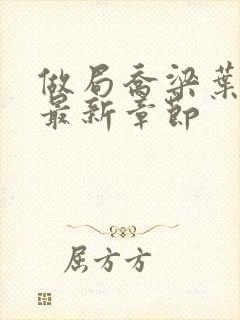 做局乔梁葉
最新章節
屈方方